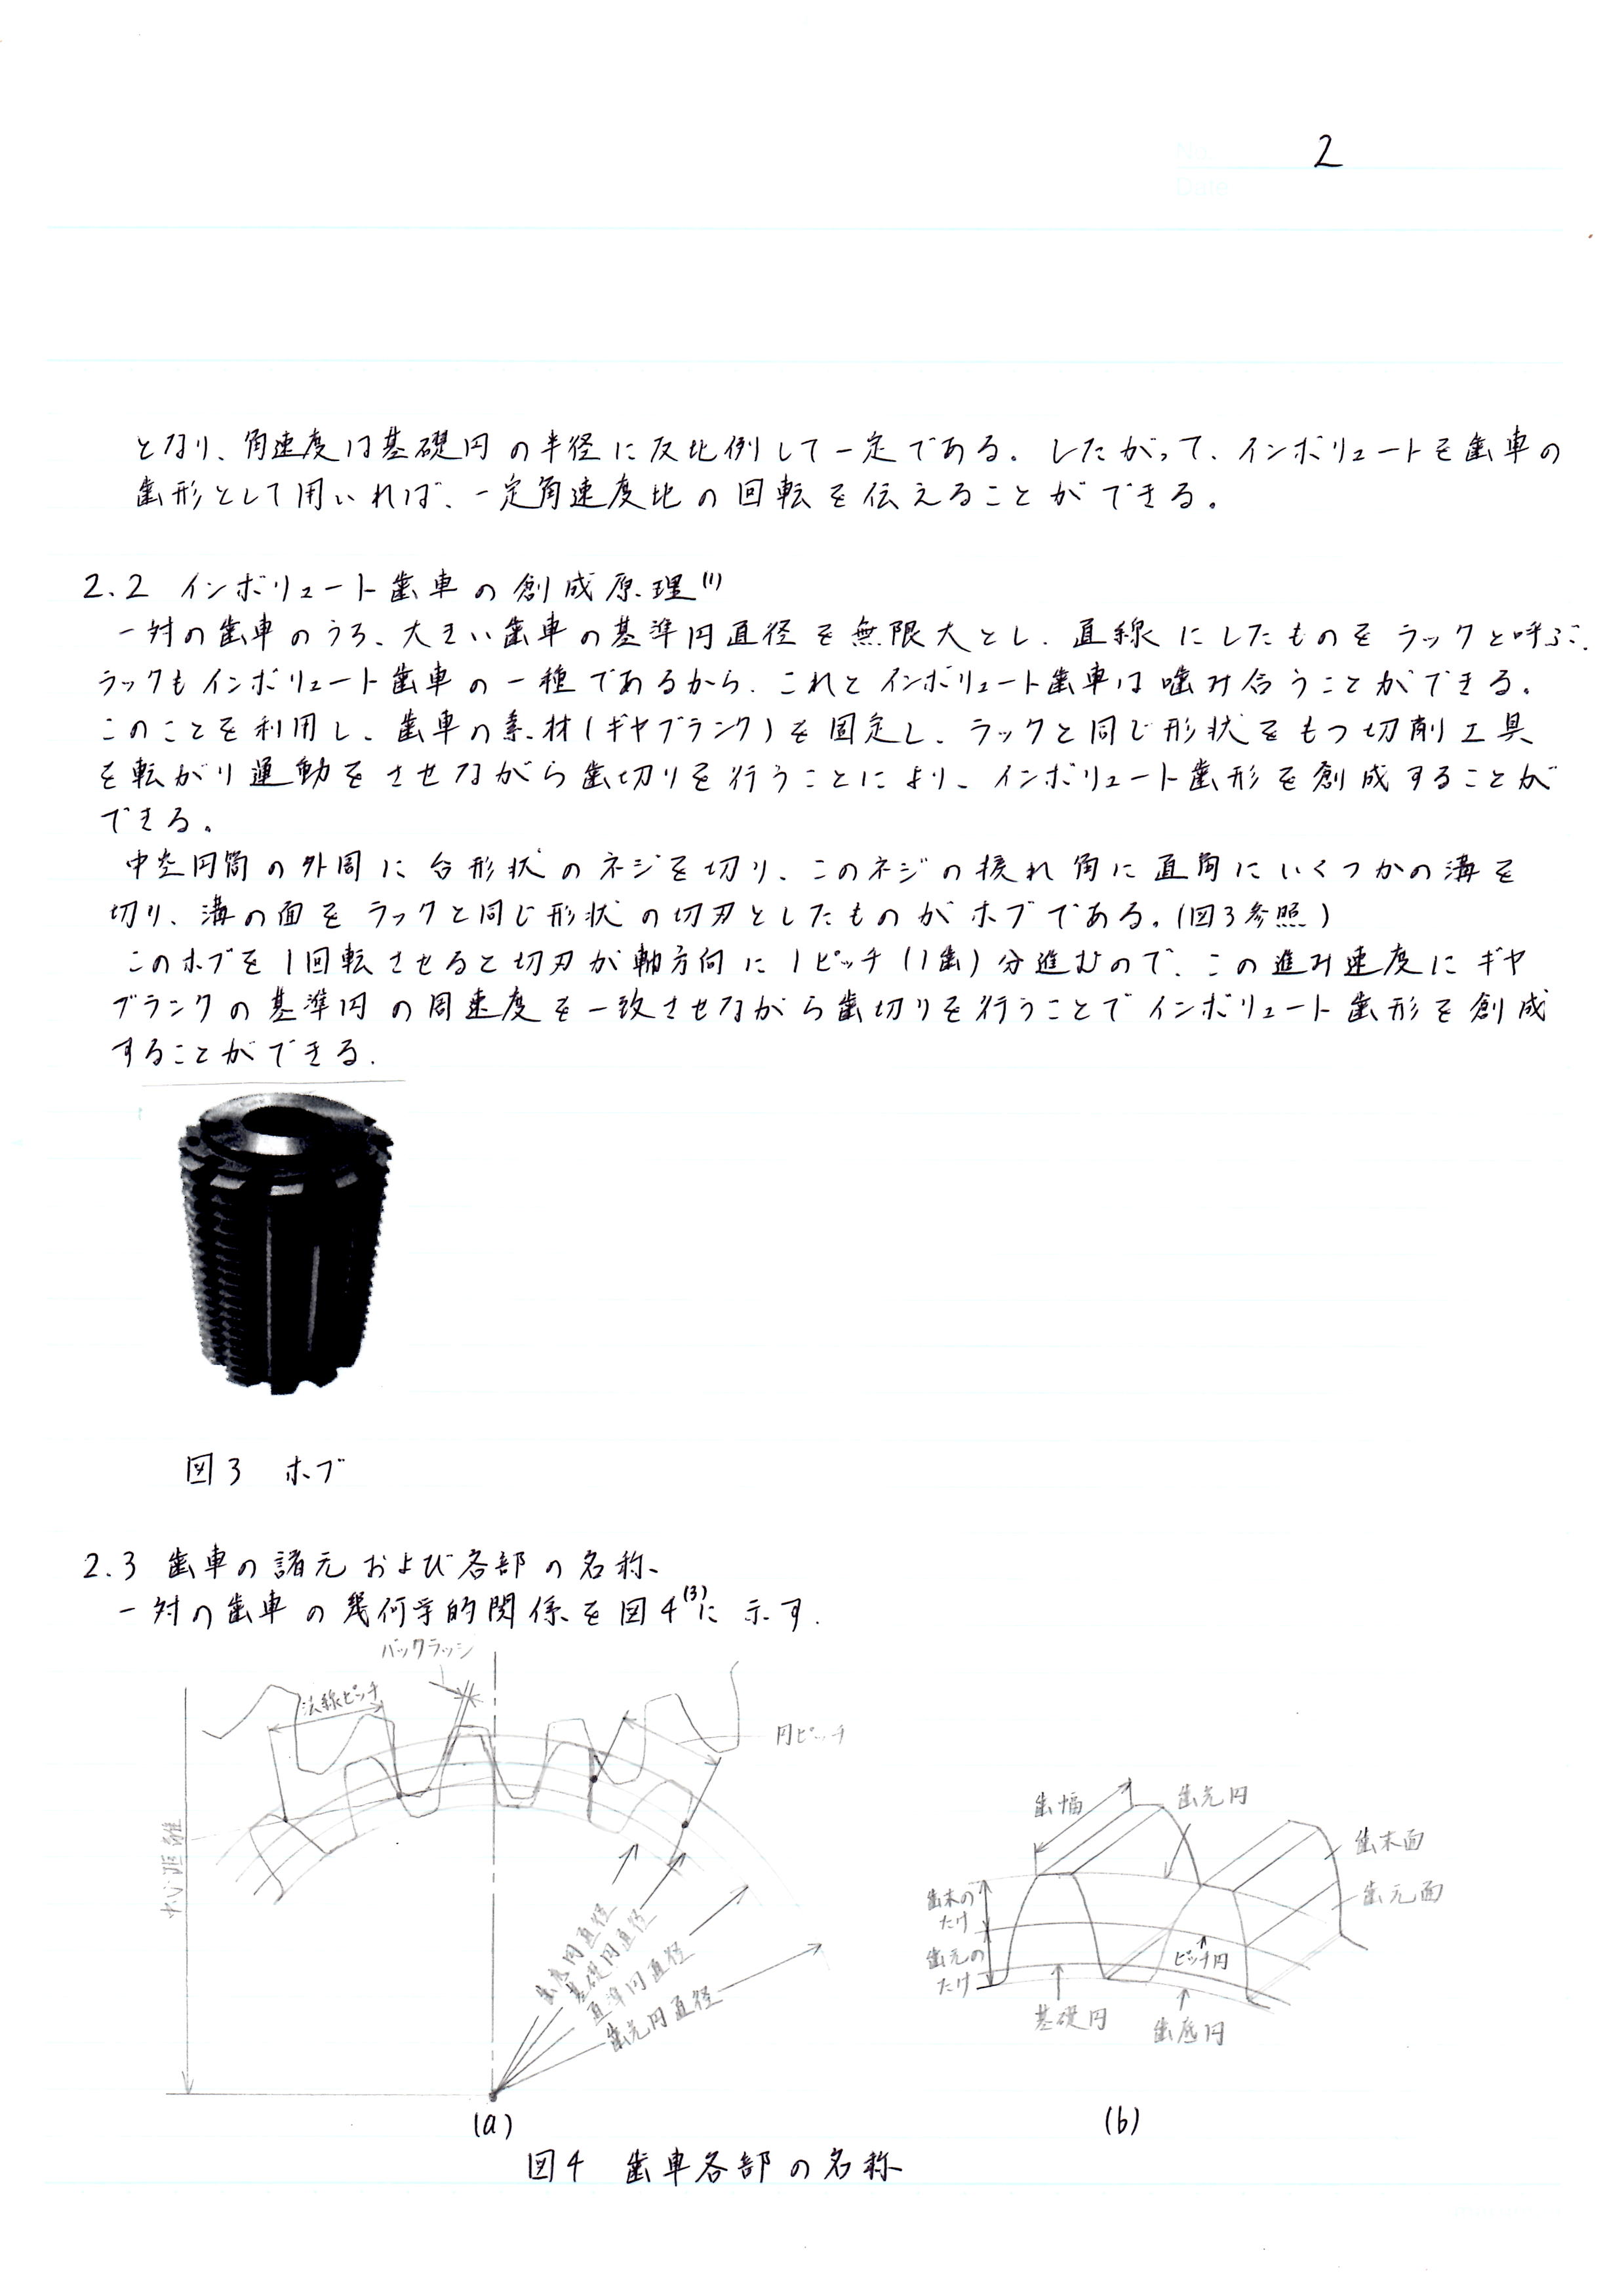 2
となり、角速度は基礎円の半径に反比例して一定である。したがって、インボリュートを歯車の
歯形として用いれば、一定角速度比の回転を伝えることができる。
2.2 インボリュート歯車の創成原理(1)
一対の歯車のうち、大きい歯車の基準円直径を無限大とし、直線にしたものをラックと呼ぶ。
ラックもインボリュート歯車の一種であるから、これとインボリュート歯車は噛み合うことができる。
このことを利用し、歯車の素材(ギヤブランク)を固定し、ラックと同じ形状をもつ切削工具
を転がり運動をさせながら歯切りを行うことにより、インボリュート歯形を創成することが
できる。
中空円筒の外周に台形状のネジを切り、このネジの捩れ角に直角にいくつかの溝を
切り、溝の面をラックと同じ形状の切刃としたものがホブである。(図3参照)
このホブを1回転させると切刃が軸方向に1ピッチ(1歯)分進むので、この進み速度にギヤ
ブランクの基準円の周速度を一致させながら歯切りを行うことでインボリュート歯形を創成
することができる.
図3 ホブ
2.3 歯車の諸元および各部の名称
一対の歯車の幾何学的関係を図4(3)に示す.
バックラッシ
法線ピッチ
円ピッチ
中心距離
歯底円直径
基礎円直径
直準円直径
歯先円直径
(a)
歯幅
歯先円
歯末面
歯元面
歯末の
たけ
歯元の
たけ
ピッチ円
基礎円
歯底円
(b)
図4 歯車各部の名称